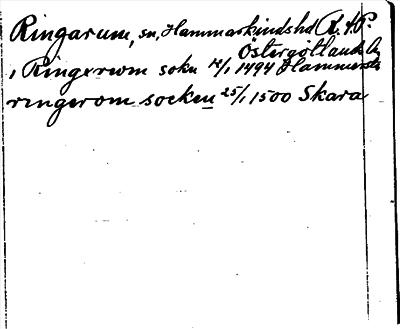 Ringarum, sn, Hammarkindshd
Östergötland
i Ringerwm sokn 12/1 1494 Hammersta
ringerom socken 25/1 1500 Skara